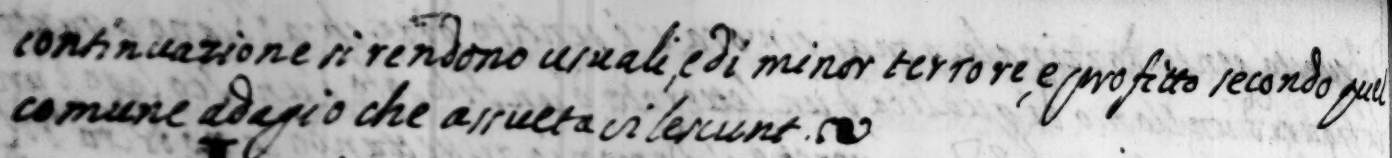 continuazione si rendono usuali, e di minor terrore, e profitto secondo quel
comune adagio che assueta vilescunt.